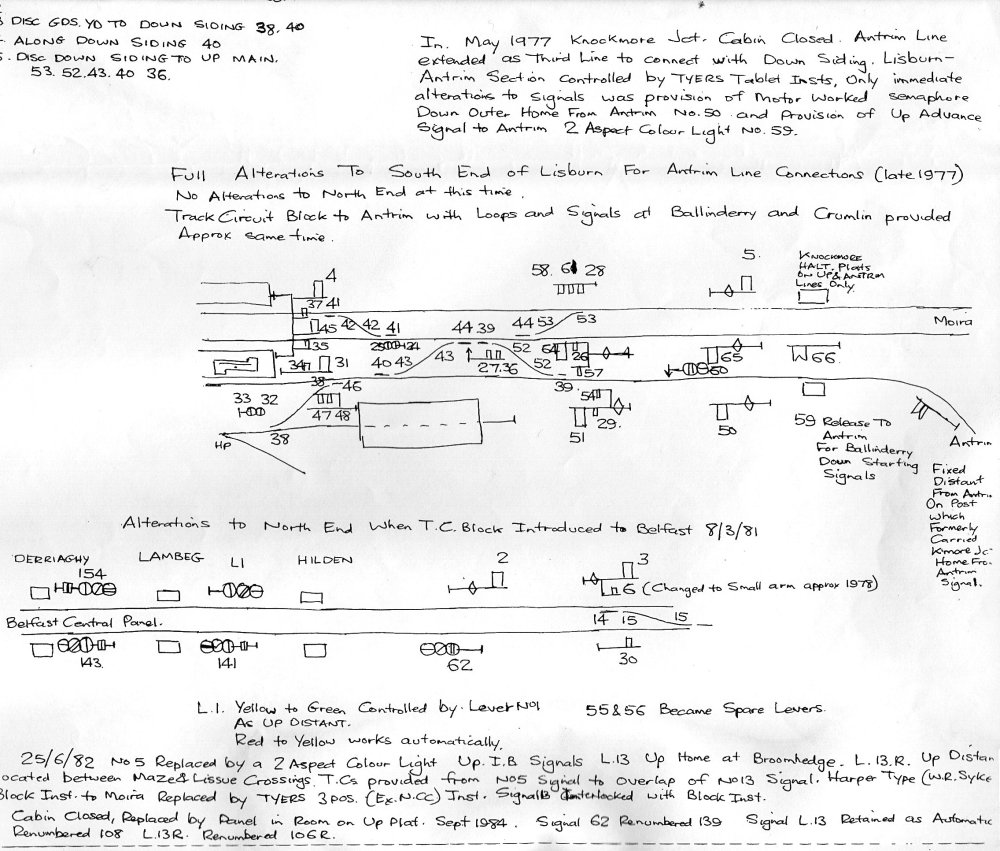 DISC GDS. YD TO DOWN SIDING 38.40
ALONG DOWN SIDING 40
DISC DOWN SIDING TO UP MAIN.
53. 52. 43. 40 36.
In. May 1977 Knockmore Jct. Cabin Closed. Antrim Line
extended as Third Line to connect with Down Siding. Lisburn-
Antrim Section controlled by TYERS Tablet Insts, Only immediate
alterations to signals was provision of Motor Worked semaphore
Down Outer Home From Antrim No. 50 and Provision of Up Advance
Signal to Antrim 2 Aspect Colour Light No. 59.
Full Alterations To South End of Lisburn For Antrim Line Connections (late 1977)
No Alterations to North End at this time.
Track Circuit Block to Antrim with Loops and Signals at Ballinderry and Crumlin provided
Approx same time.
4
58. 61 28
5.
KNOCKMORE
HALT. Plats
on UP & ANTRIM
Lines Only.
37 41
45 42 42 41
44 39 44 53 53
Moira
35
43
52
64 26
65
W66.
34 31
40 43
27.36
52
57
60
38 46
39.
54
33 32
47 48
29.
51
50
38
HP
59 Release To
Antrim
For Ballinderry
Down Starting
Signals
Antrim
Fixed
Distant
From Antri.
On Post
which
Formerly
Carried
Kmore Jc
Home Fro.
Antrim
Signal.
Alterations to North End When T.C. Block Introduced to Belfast 8/3/81
DERRIAGHY LAMBEG L1 HILDEN 2 3
154
6 (Changed to Small arm approx 1978)
14 15 15
Belfast Central Panel.
143. 141 62 30
L.1. Yellow to Green Controlled by Lever No1
As UP DISTANT.
Red to Yellow works automatically.
55 & 56 Became Spare Levers.
25/6/82 No 5 Replaced by a 2 Aspect Colour Light Up. I.B Signals L.13 Up Home at Broomhedge. L.13.R. Up Distan
ocated between Maze & Lissue Crossings. T.Cs provided from No5 Signal to Overlap of No13 Signal. Harper Type (W.R. Syke
Block Inst. to Moira Replaced by TYERS 3 pos. (Ex. N.CC) Inst. Signal 13 Interlocked with Block Inst.
Cabin Closed, Replaced by Panel in Room on Up Plat. Sept 1984. Signal 62 Renumbered 139 Signal L.13 Retained as Automatic
Renumbered 108 L.13R. Renumbered 106R.